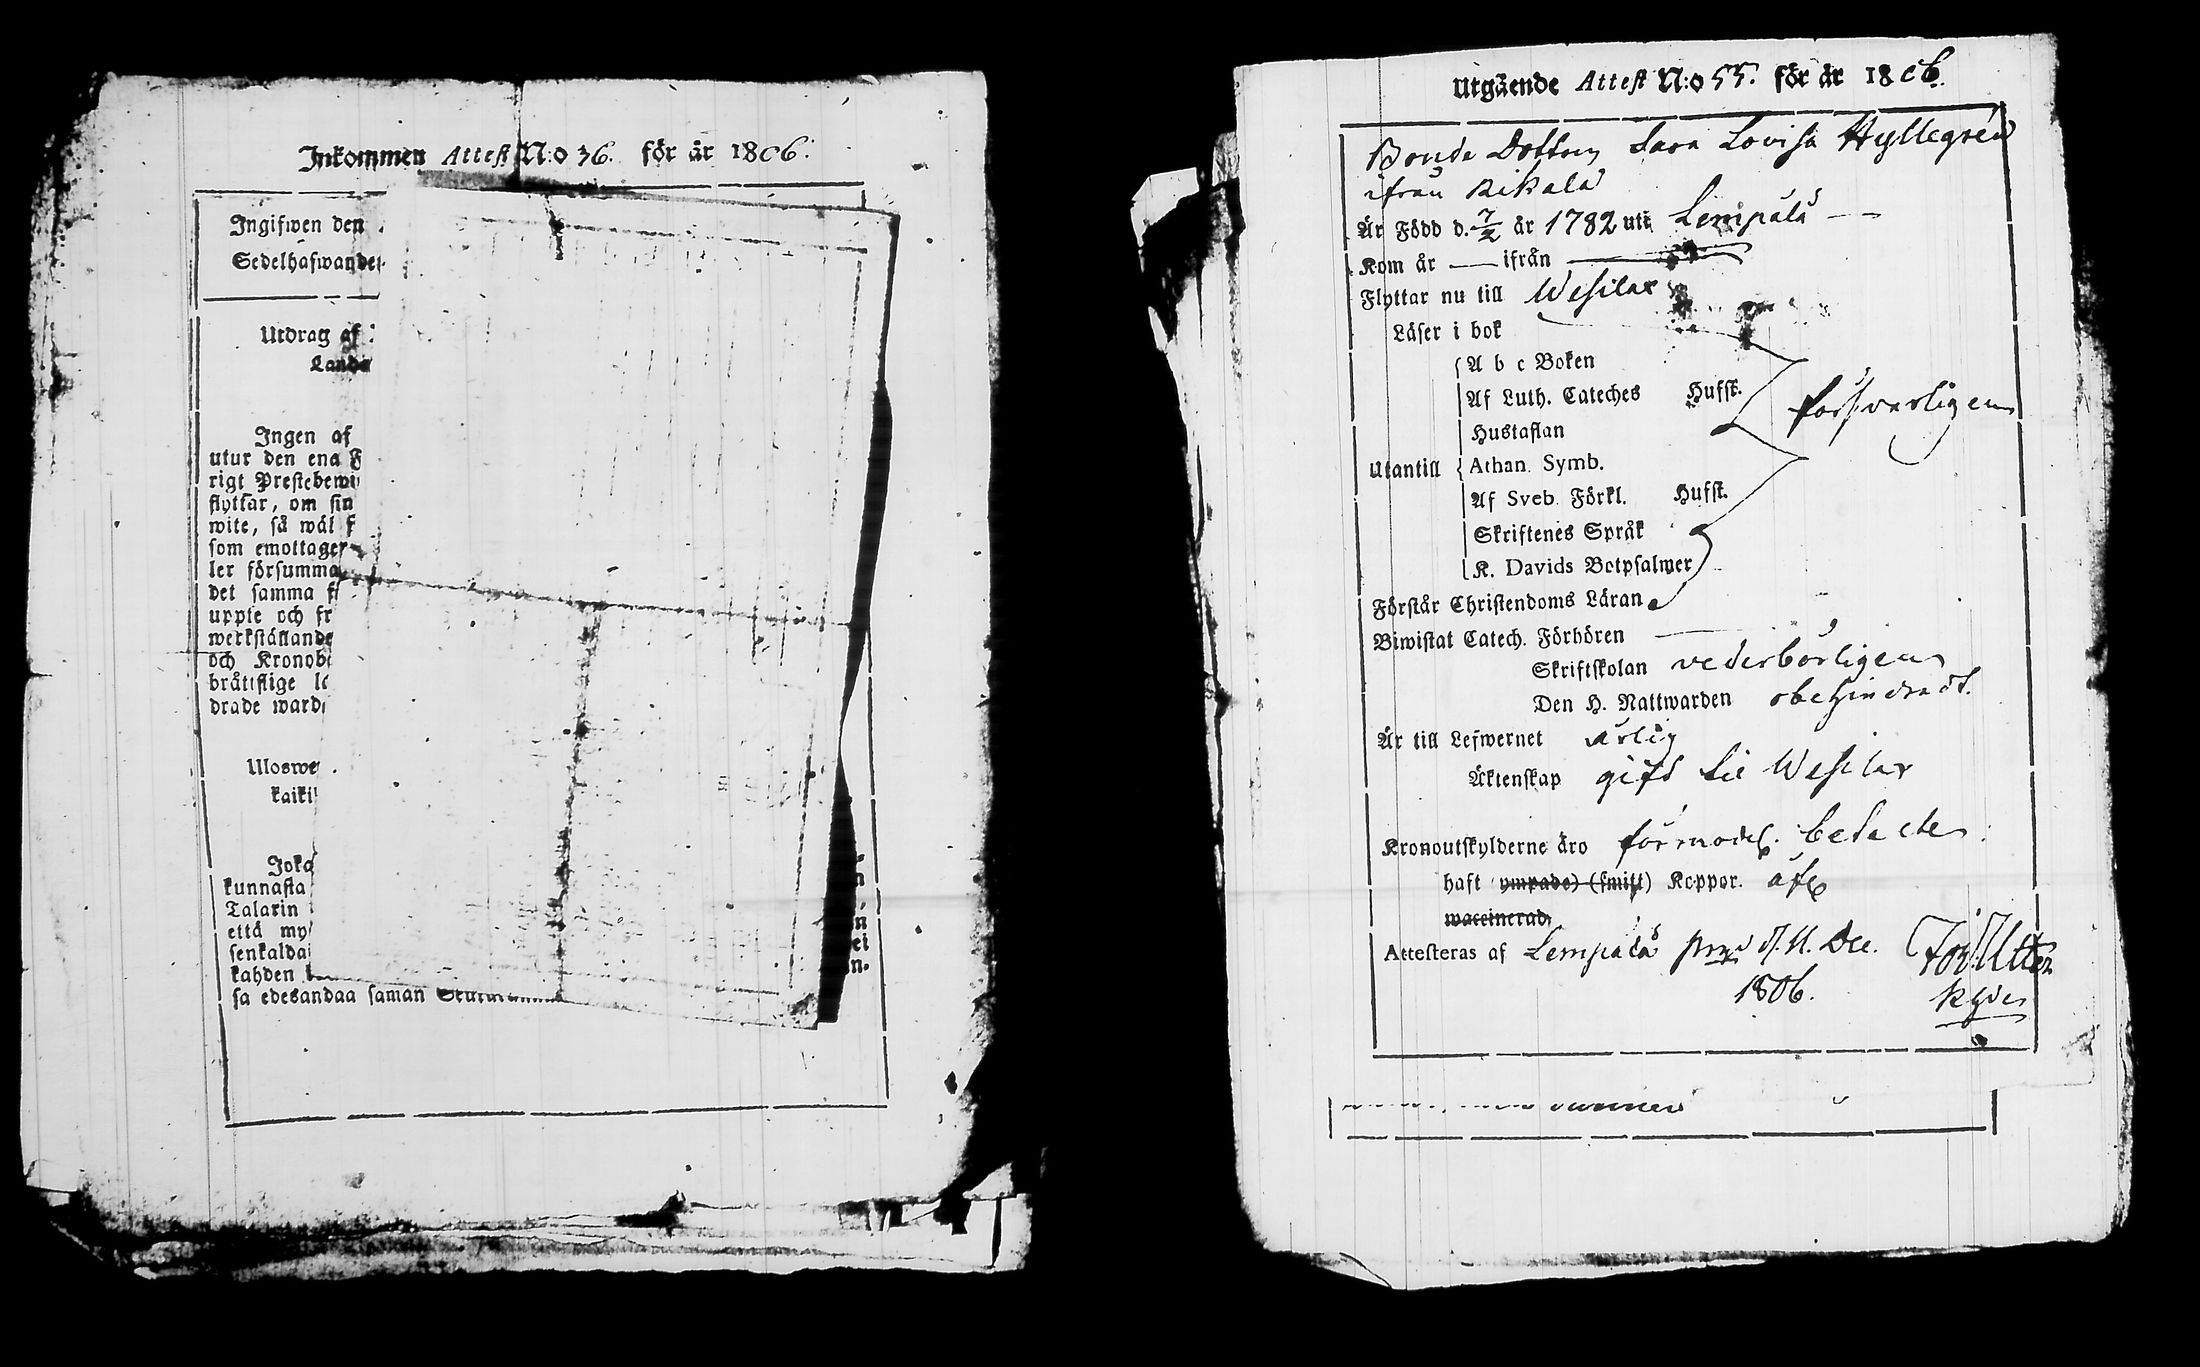 Inkommen Attest N:o 36. för år 1806.
Ingifwen den
Sedelhafwande
Utdrag af
Lands
Ingen af
utur den ena F
rigt Prestebewi
flyttar, om sin
wite, så wäl f
som emottager
ler försumma
det samma f
uppte och fr
werkställande
och Kronobe
bråttslige le
drade ward
Uloswe
kaiki
Joka
kunnasta
Talarin
että my
senkalda
kahden
sa edesandaa saman
n
n
ei
n.
Utgående Attest N:o 55. för år 1806.
Bonde Dottren Sara Lovisa Hyllegrén
ifrån Kikala
Är Född d. 7/2 år 1782 uti Lempälä
Kom år — ifrån —
Flyttar nu till Wesilax
Läser i bok
A b c Boken
Af Luth. Cateches Hufst.
Hustaflan
försvarligen
Utantill Athan. Symb.
Af Sveb. Förkl. Hufst.
Skriftenes Språk
K. Davids Botpsalmer
Förstår Christendoms Läran
Biwistat Catech. Förhören
Skriftskolan vederbörligen
Den H. Nattwarden obehindradt.
Är till Lefwernet ärlig
Äktenskap gift til Wesilax
Kronoutskylderne äro förmodel. betalte
haft ympade) (smitt) Koppor.
waccinerad
Attesteras af Lempälä d. 11. Dec.
1806.